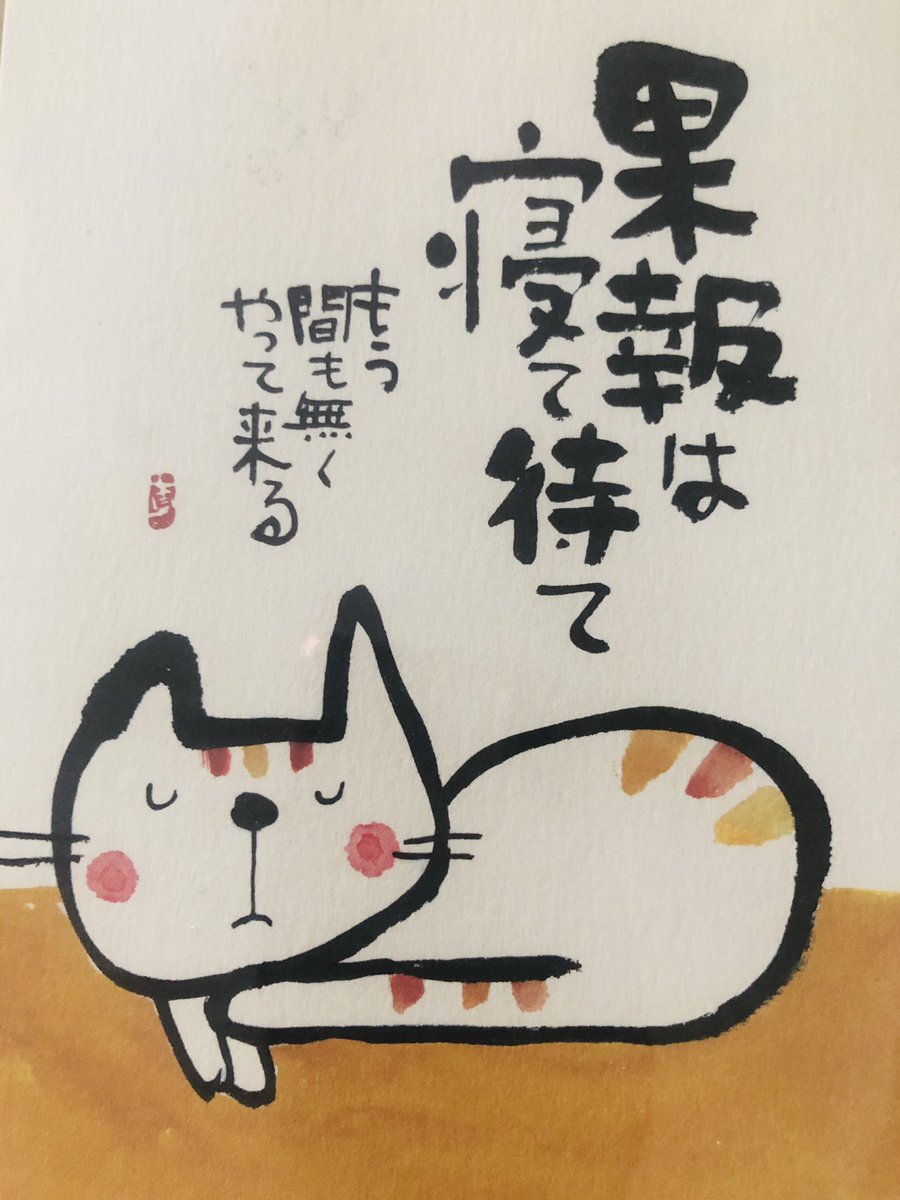 果報は
寝て待て
もう
間も無く
やって来る